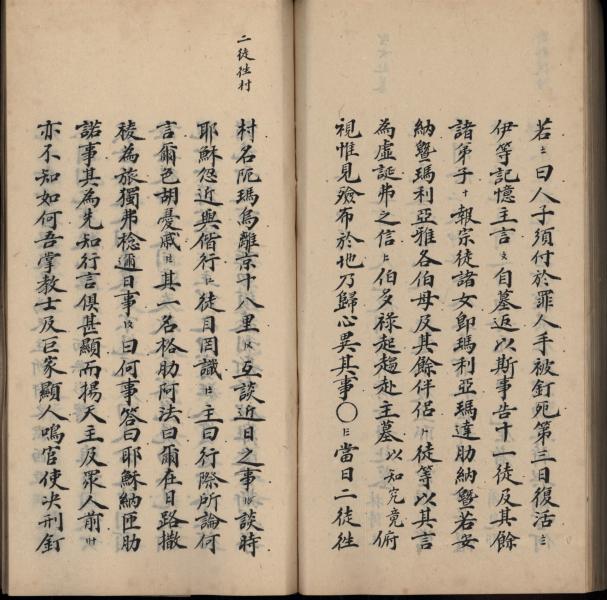 若〧曰人子須付於罪人手被釘死第三日復活〨
伊等記憶主言〩自墓返以斯事告十一徒及其餘
諸弟子十報宗徒諸女即瑪利亞瑪達肋納曁若安
納曁瑪利亞雅各伯母及其餘伴侶徒等以其言
為虛誕弗之信伯多祿起趨赴主墓以知究竟俯
視惟見殮布於地乃歸心異其事〇當日二徒徃
二徒徃村
村名阨瑪烏離京十八里互談近日之事談時
耶穌忽近與偕行徒目罔識主曰行際所論何
言爾色胡憂慼其一名格肋阿法曰爾在日路撒
稜為旅獨弗稔邇日事曰何事答曰耶穌納匝肋
諾事其為先知行言俱甚顯而揚天主及眾人前
亦不知如何吾掌教士及巨家顯人鳴官使决刑釘